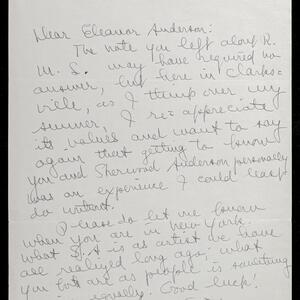 Dear Eleanor Anderson:
The note you left along R.
M. S. may have required no
answer, but here in Clarks-
ville, as I think over my
summer, I re-appreciate
its values and want to say
again that getting to know
you and Sherwood Anderson personally
was an experience I could least
do without.
Please do let me know
when you are in New York.
What S.A. is as artist we have
all realized long ago; what
you both are as people is something
equally. Good luck!